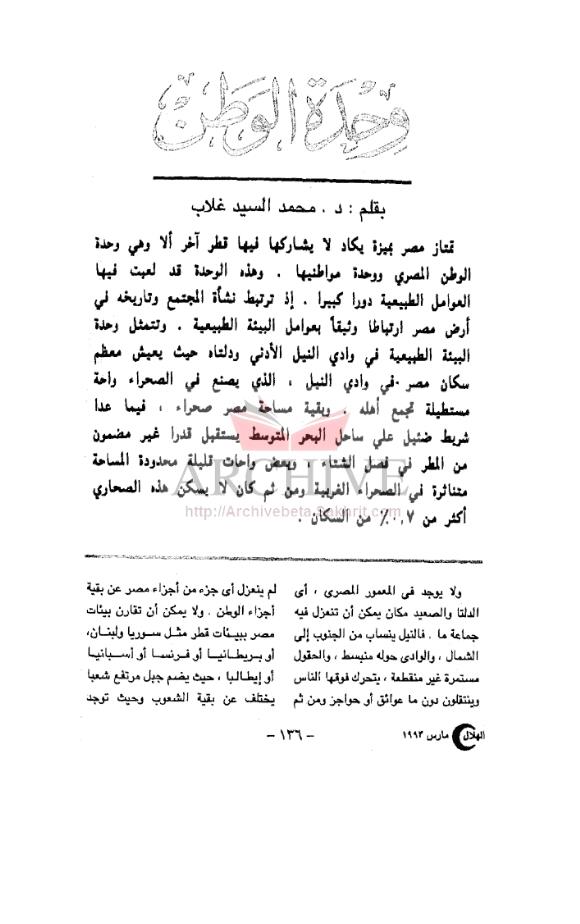 وحدة الوطن
بقلم : د . محمد السيد غلاب
تمتاز مصر بميزة يكاد لا يشاركها فيها قطر آخر ألا وهي وحدة
الوطن المصري ووحدة مواطنيها . وهذه الوحدة قد لعبت فيها
العوامل الطبيعية دورا كبيرا . إذ ترتبط نشأة المجتمع وتاريخه في
أرض مصر ارتباطا وثيقاً بعوامل البيئة الطبيعية . وتتمثل وحدة
البيئة الطبيعية في وادي النيل الأدني ودلتاه حيث يعيش معظم
سكان مصر في وادي النيل ، الذي يصنع في الصحراء واحة
مستطيلة تجمع أهله . وبقية مساحة مصر صحراء ، فيما عدا
شريط ضئيل علي ساحل البحر المتوسط يستقبل قدرا غير مضمون
من المطر في فصل الشتاء ، وبعض واحات قليلة محدودة المساحة
متناثرة في الصحراء الغربية ومن ثم كان لا يسكن هذه الصحاري
أكثر من ٠,٧٪ من السكان .
ARCHIVE
http://Archivebeta.Sakhrit.com
ولا يوجد فى المعمور المصرى ، أى
الدلتا والصعيد مكان يمكن أن تنعزل فيه
جماعة ما . فالنيل ينساب من الجنوب إلى
الشمال ، والوادى حوله منبسط ، والحقول
مستمرة غير منقطعة ، يتحرك فوقها الناس
وينتقلون دون ما عوائق أو حواجز ومن ثم
لم ينعزل أى جزء من أجزاء مصر عن بقية
أجزاء الوطن . ولا يمكن أن تقارن بيئات
مصر ببيئات قطر مثل سوريا ولبنان،
أو بريطانيا أو فرنسا أو أسبانيا
أو إيطاليا ، حيث يضم جبل مرتفع شعبا
يختلف عن بقية الشعوب وحيث توجد
الهلال مارس ١٩٩٣
- ١٣٦ -